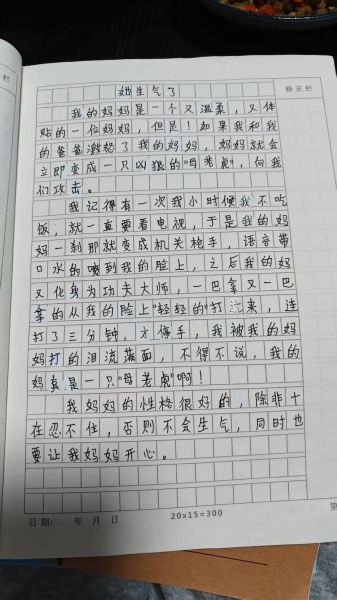 她生气了
修正栏
栏
我的妈妈是一个又温柔，又体
贴的一位妈妈，但是！如果我和我
的爸爸激怒了我的妈妈，妈妈就会
立即变成一只凶狠的“母老虎”，向我
们攻击。
我记得有一次我小时候我不吃
饭，就一直要看电视，于是我的妈
妈一刹那就变成机关枪手，语音带
口水的喷到我的脸上，之后我的妈
又化身为功夫大师，一巴拿又一巴
拿的从我的脸上“轻轻的”打过来，连
打了三分钟，才停手，我被我的妈
妈打的泪流满面，不得不说，我的
妈真是一只“母老虎”啊！
我妈妈的性格很好的，除非十
在忍不住，否则不会生气，同时也
要让我妈妈开心。
日期： 年 月 日
20x15=300
第